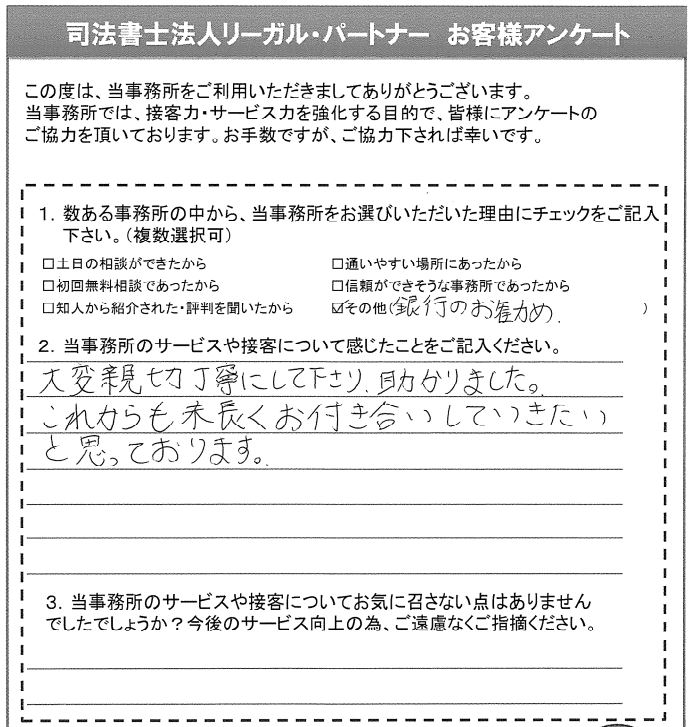 司法書士法人リーガル・パートナー お客様アンケート
この度は、当事務所をご利用いただきましてありがとうございます。
当事務所では、接客力・サービス力を強化する目的で、皆様にアンケートの
ご協力を頂いております。お手数ですが、ご協力下されば幸いです。
1. 数ある事務所の中から、当事務所をお選びいただいた理由にチェックをご記入
下さい。(複数選択可)
□土日の相談ができたから □通いやすい場所にあったから
□初回無料相談であったから □信頼ができそうな事務所であったから
□知人から紹介された・評判を聞いたから ☑その他(銀行のお勧め. )
2. 当事務所のサービスや接客について感じたことをご記入ください。
大変親切丁寧にして下さり、助かりました。
これからも末長くお付き合いしていきたい
と思っております。
3. 当事務所のサービスや接客についてお気に召さない点はありません
でしたでしょうか?今後のサービス向上の為、ご遠慮なくご指摘ください。